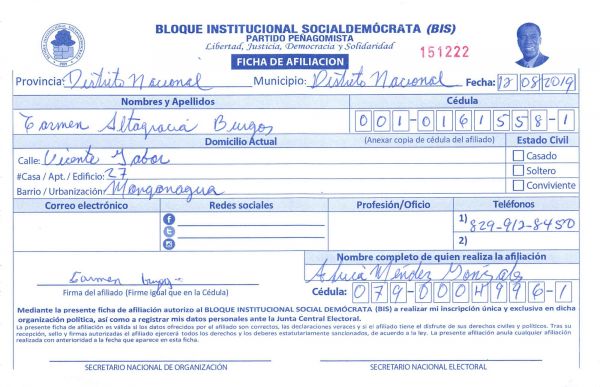 BLOQUE INSTITUCIONAL SOCIALDEMÓCRATA (BIS)
PARTIDO PEÑAGOMISTA
Libertad, Justicia, Democracia y Solidaridad
FICHA DE AFILIACION
151222
Provincia: Distrito Nacional Municipio: Distrito Nacional Fecha: 12/08/2019
Nombres y Apellidos Cédula
Carmen Altagracia Burgos 001-0161558-1
Domicilio Actual (Anexar copia de cédula del afiliado) Estado Civil
Calle: Vicente Casado
#Casa / Apt. / Edificio: 27 Soltero
Barrio / Urbanización: Manganagua Conviviente
Correo electrónico Redes sociales Profesión/Oficio Teléfonos
1) 829-912-8450
2)
Nombre completo de quien realiza la afiliación
Carmen Burgos Méndez González
Firma del afiliado (Firme igual que en la Cédula) Cédula: 079-0004996-1
Mediante la presente ficha de afiliación autorizo al BLOQUE INSTITUCIONAL SOCIAL DEMÓCRATA (BIS) a realizar mi inscripción única y exclusiva en dicha
organización política, así como a registrar mis datos personales ante la Junta Central Electoral.
La presente ficha de afiliación es válida si los datos ofrecidos por el afiliado son correctos, las declaraciones veraces y si el afiliado tiene el disfrute de sus derechos civiles y políticos. Tras su
recepción, sello y firmas autorizadas el afiliado ejercerá todos los derechos y los deberes estatutariamente sancionados, de acuerdo a la ley. La presente afiliación anula cualquier afiliación
realizada con anterioridad a la fecha que aparece en esta ficha.
SECRETARIO NACIONAL DE ORGANIZACIÓN SECRETARIO NACIONAL ELECTORAL